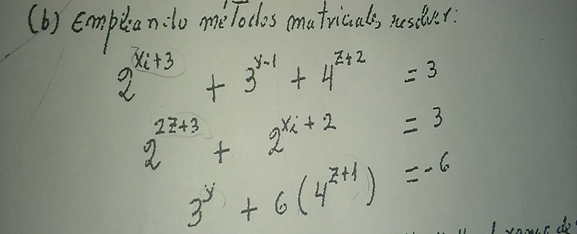 (b) Empleando métodos matriciales, resolver:
2^{xi+3} + 3^{y-1} + 4^{z+2} = 3
2^{2z+3} + 2^{xi+2} = 3
3^y + 6(4^{z+1}) = -6